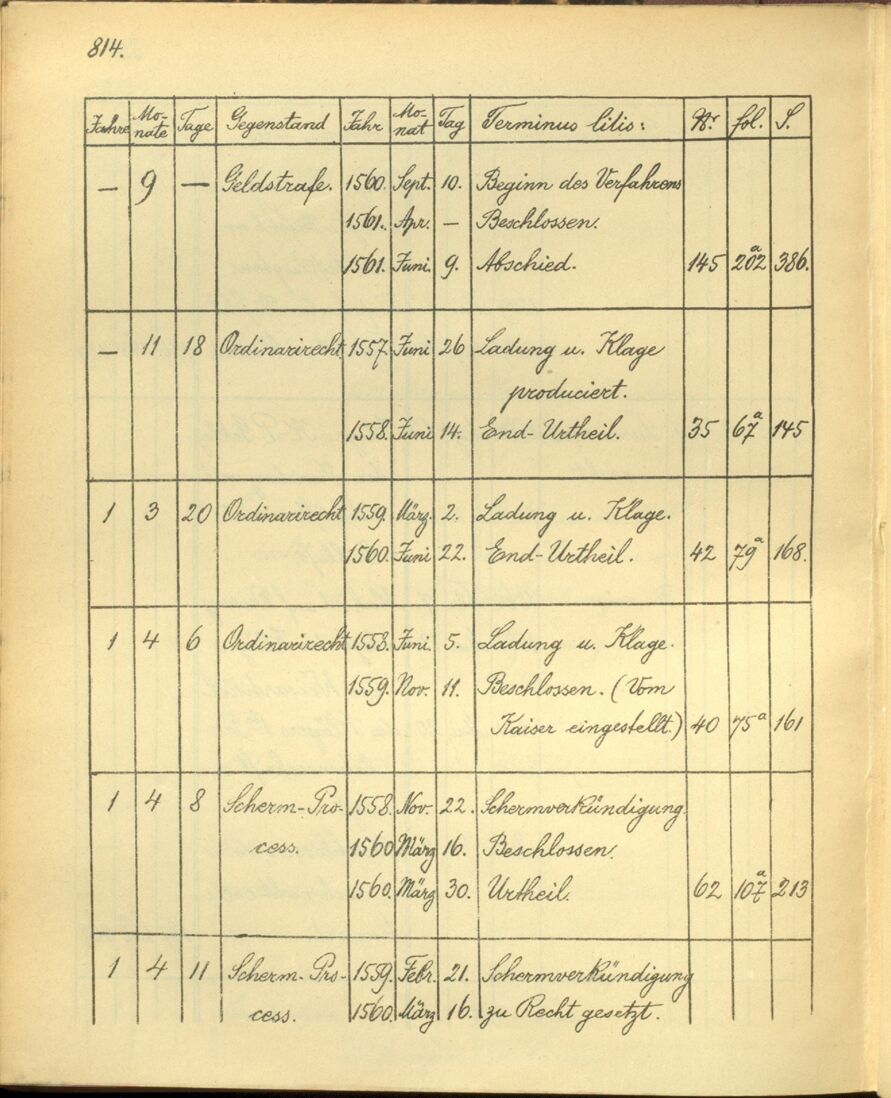 814.
Jahre Mo-nate Tage Gegenstand Jahr Mo-nat Tag Terminus litis: Nr. fol. S.
— 9 — Geldstrafe. 1560. Sept. 10. Beginn des Verfahrens
1561. Apr. — Beschlossen.
1561. Juni. 9. Abschied. 145 202a 386.
— 11 18 Ordinarirecht. 1557. Juni 26 Ladung u. Klage
produciert.
1558. Juni 14. End-Urtheil. 35 67a 145
1 3 20 Ordinarirecht 1559. März. 2. Ladung u. Klage.
1560. Juni 22. End-Urtheil. 42 79a 168.
1 4 6 Ordinarirecht 1558. Juni. 5. Ladung u. Klage.
1559. Nov. 11. Beschlossen. (Vom
Kaiser eingestellt.) 40 75a 161
1 4 8 Scherm-Pro- 1558. Nov. 22. Schermverkündigung.
cess. 1560 März 16. Beschlossen.
1560. März 30. Urtheil. 62 107a 213
1 4 11 Scherm-Pro- 1559. Febr. 21. Schermverkündigung
cess. 1560. März 16. zu Recht gesetzt.